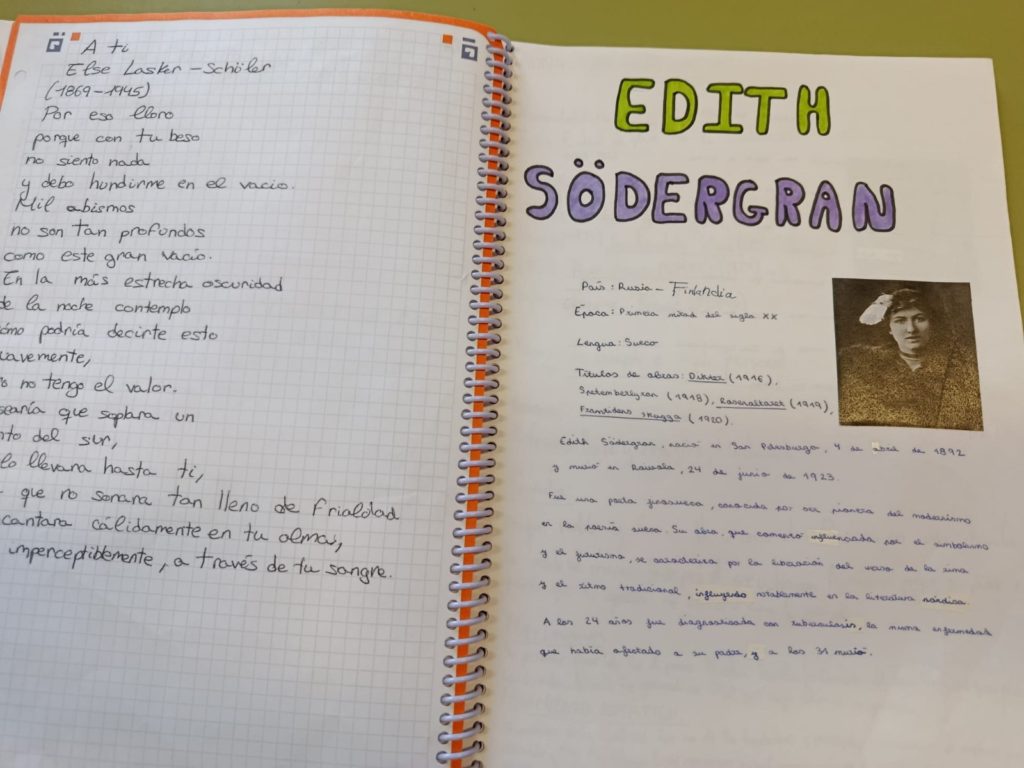 A ti
Else Lasker-Schüler
(1869-1945)
Por eso lloro
porque con tu beso
no siento nada
y debo hundirme en el vacío.
Mil abismos
no son tan profundos
como este gran vacío.
En la más estrecha oscuridad
de la noche contemplo
cómo podría decirte esto
uavemente,
no tengo el valor.
searía que soplara un
nto del sur,
lo llevara hasta ti,
que no sonara tan lleno de frialdad
cantara cálidamente en tu alma,
imperceptiblemente, a través de tu sangre.
EDITH
SÖDERGRAN
País: Rusia - Finlandia
Época: Primera mitad del siglo XX
Lengua: Sueco
Títulos de obras: Dikter (1916),
(1918), Rosenaltaret (1919),
Framtidens skugga (1920).
Edith Södergran, nació en San Petersburgo, 4 de abril de 1892
y murió en Raivola, 24 de junio de 1923.
Fue una poeta finosueca, conocida por ser pionera del modernismo
en la poesía sueca. Su obra, que comenzó influenciada por el simbolismo
y el futurismo, se caracteriza por la liberación del verso de la rima
y el ritmo tradicional, influyendo notablemente en la literatura nórdica.
A los 24 años fue diagnosticada con tuberculosis, la misma enfermedad
que había afectado a su padre, y a los 31 murió.